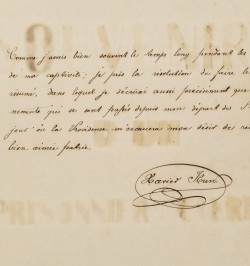 Comme j'avais bien souvent le temps long pendant les
de ma captivité; je pris la résolution de faire le
résumé, dans lequel je décrirai aussi précisément que
nements qui se sont passés depuis mon départ des
jour où la Providence m'accorera mon désir de re
bien aimée patrie.
Xavier